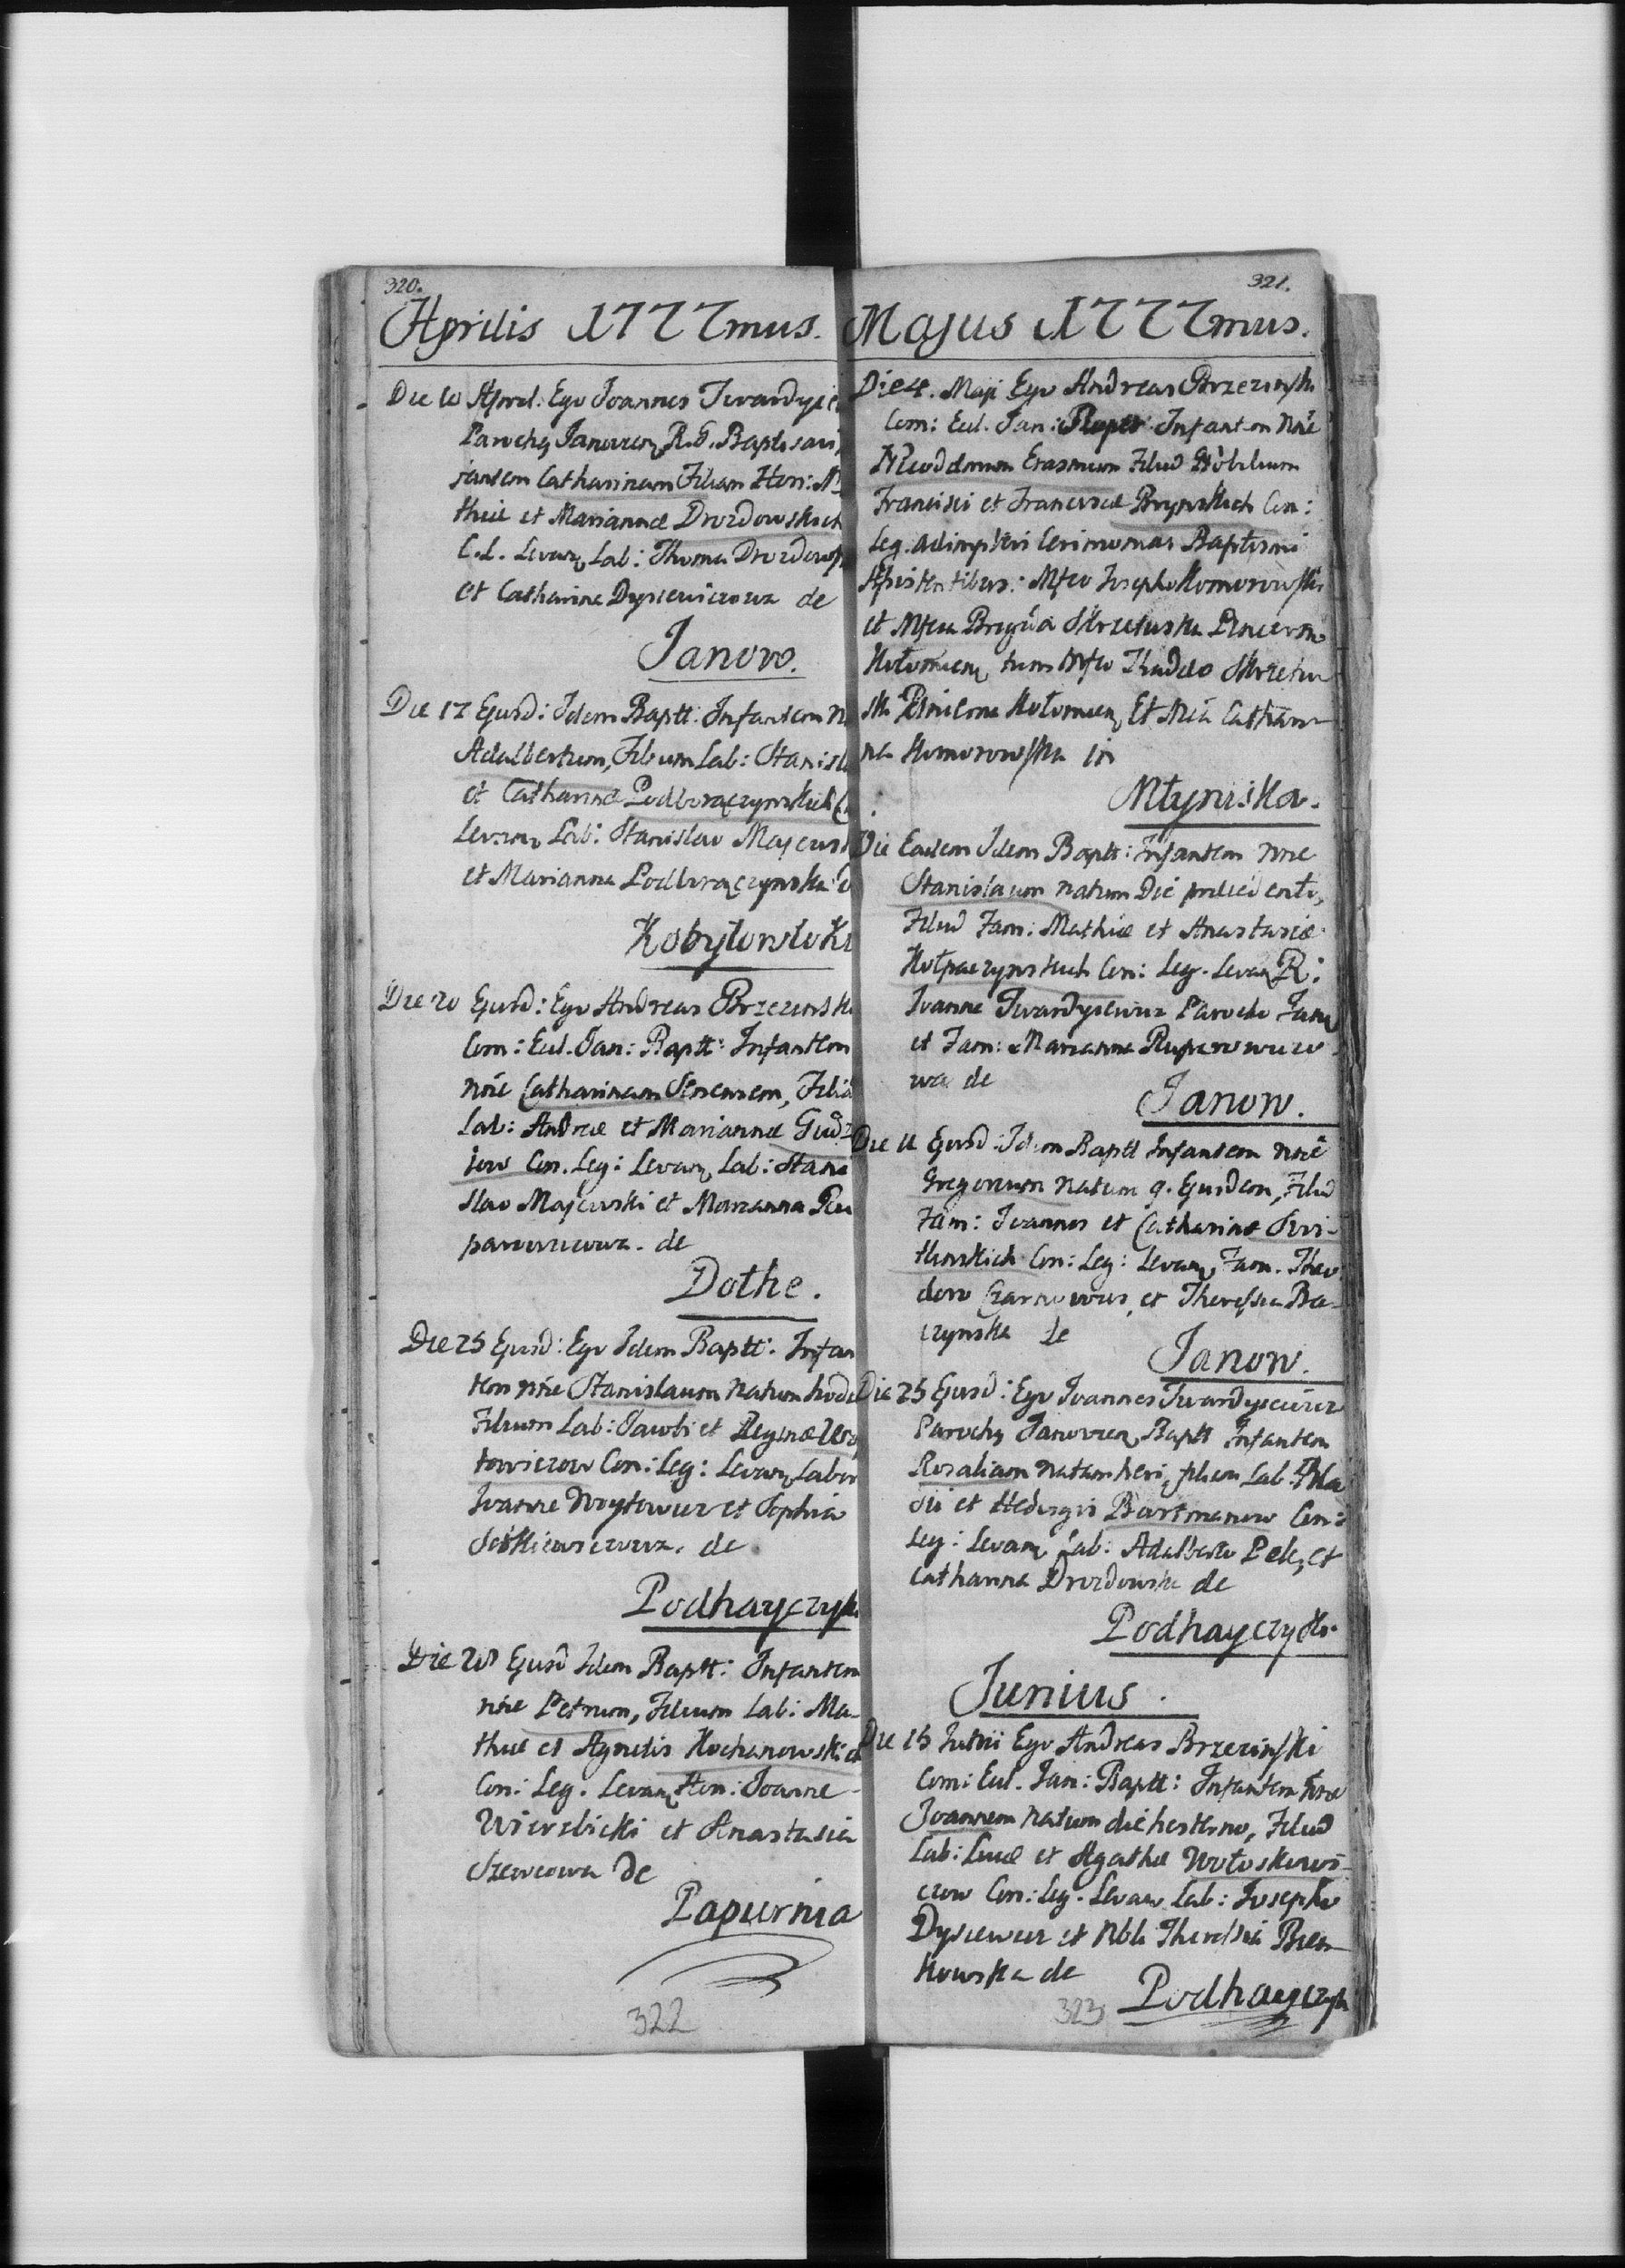 320.
Aprilis 1777mus.
Die 10 April: Ego Joannes Twardysie
Parochq Janovien R. G. Baptisavi
fantem Catharinam Filiam Hon: M
thiæ et Mariannæ Drozdowskich
C. L. Levan Lab: Thoma Drozdows
et Catharina Dysiewiczowa de
Janow.
Die 17 Ejusd: Idem Baptt: Infantem N
Adalbertum, Filium Lab: Stanisl
et Catharinæ Podboraczynskich
Levan Lab: Stanislao Majewsk
et Marianna Podboraczynska
Kobylowloki
Die 20 Ejusd: Ego Andreas Brzezinski
Com: Ecl. Jan: Baptt: Infantem
Nõie Catharinam Senensem, Filia
Lab: Andreæ et Mariannæ Gudz
iow Con. Leg: Levan Lab: Stani
slao Majewski et Marianna Ru
parowiczowa. de
Dothe.
Die 25 Ejusd: Ego Idem Baptt: Infan
tem nõie Stanislaum Natum hodie
Filium Lab: Jacobi et Reginæ Woy
towiczow Con: Leg: Levan Labor
Joanne Woytowicz et Sophia
de
Podhayczyk
Die 28 Ejusd Idem Baptt: Infantem
nõie Petrum, Filium Lab: Ma-
thiæ et Agnetis Kochanowskich
Con: Leg. Levan Hon: Joanne
Wierzbicki et Anastasia
Szewcowa de
Papurnia
322
321.
Majus 1777mus.
Die 4. Maji Ego Andreas Brzezinski
Com: Ecl. Jan: Baptt: Infantem Nõie
Nicodemum Erasmum Filiũ Nobilium
Francisci et Franciscæ Brynskich Con:
Leg. adimplevi Cerimonias Baptismi
Assistentibus: Mfco Josepho Komorowski
et Mfca Brigida Skrzetuska Pincerna
Kolomien, tum Mfco Thadeo Skrzetu
ski Pincerna Kolomien, Et Mfca Cathari
na Komorowska in
Młyniska.
Die Eadem Idem Baptt: Infantem nõie
Stanislaum natum Die præcedenti,
Filiũ Fam: Mathiæ et Anastasiæ
Kołpaczynskich Con: Leg. Levan R:
Joanne Twardysiewicz Parocho Jano
et Fam: Marianna Ruparowiczo
wa de
Janow.
Die 11 Ejusd: Idem Baptt Infantem nõie
Gregorium Natum 9. Ejusdem, Filiũ
Fam: Joannis et Catharinæ Swi-
Con: Leg: Levan Fam. Theo
doro Czarnowicz, et Theressia Ba-
czynska de
Janow.
Die 25 Ejusd: Ego Joannes Twardysiewicz
Parochq Janovien Baptt Infantem
Rosaliam natam heri, filiam Lab. Bla
sii et Hedvigis Bartmanow Con:
Leg: Levan Lab: Adalberto Pele, et
Catharina Drozdowska de
Podhayczyki.
Junius.
Die 15 Junii Ego Andreas Brzezinski
Com: Ecl. Jan: Baptt: Infantem nõie
Joannem Natum die hesterno, Filiũ
Lab: Lucæ et Agathæ Wołoskiewi-
czow Con: Leg. Levan Lab: Josepho
Dysiewicz et Nbli Theressia Bien-
kowska de
Podhayczyk
323